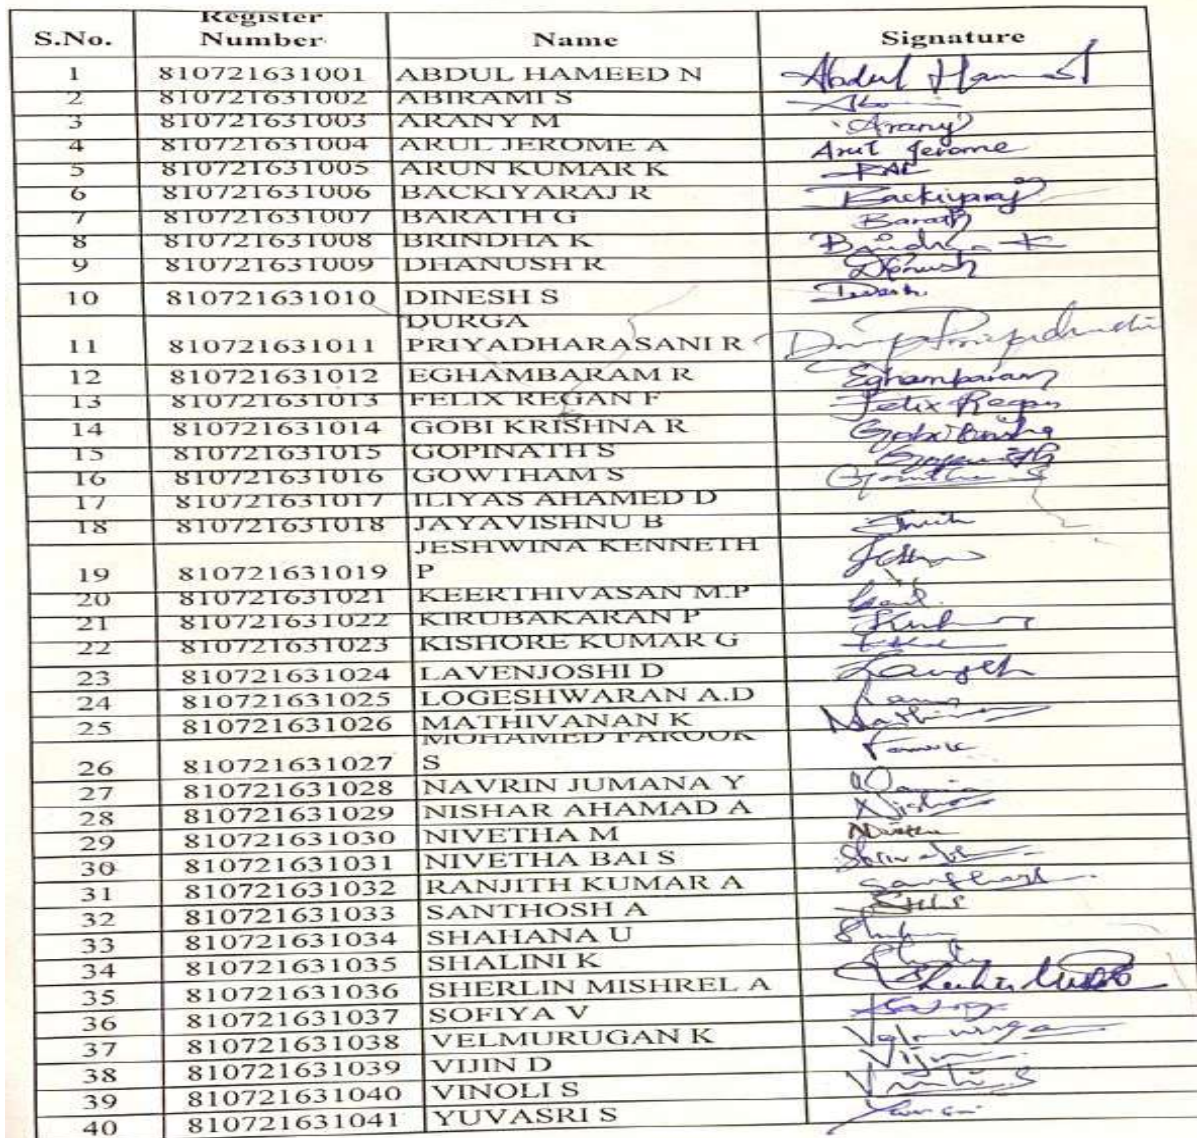 S.No. Register Number Name Signature
1 810721631001 ABDUL HAMEED N Abdul Ham
2 810721631002 ABIRAMI S
3 810721631003 ARANY M Arany
4 810721631004 ARUL JEROME A Arul Jerome
5 810721631005 ARUN KUMAR K
6 810721631006 BACKIYARAJ R Backiyaraj
7 810721631007 BARATH G Barath
8 810721631008 BRINDHA K Brindha K
9 810721631009 DHANUSH R Dhanush
10 810721631010 DINESH S
11 810721631011 DURGA
PRIYADHARASANI R
12 810721631012 EGHAMBARAM R Eghambaram
13 810721631013 FELIX REGAN F Felix Regan
14 810721631014 GOBI KRISHNA R
15 810721631015 GOPINATH S
16 810721631016 GOWTHAM S
17 810721631017 ILIYAS AHAMED D
18 810721631018 JAYAVISHNU B
19 810721631019 JESHWINA KENNETH
P
20 810721631021 KEERTHIVASAN M.P
21 810721631022 KIRUBAKARAN P
22 810721631023 KISHORE KUMAR G
23 810721631024 LAVENJOSHI D
24 810721631025 LOGESHWARAN A.D
25 810721631026 MATHIVANAN K
26 810721631027 MOHAMED FAROOK
S
27 810721631028 NAVRIN JUMANA Y
28 810721631029 NISHAR AHAMAD A
29 810721631030 NIVETHA M
30 810721631031 NIVETHA BAI S
31 810721631032 RANJITH KUMAR A
32 810721631033 SANTHOSH A
33 810721631034 SHAHANA U
34 810721631035 SHALINI K
35 810721631036 SHERLIN MISHREL A
36 810721631037 SOFIYA V
37 810721631038 VELMURUGAN K
38 810721631039 VIJIN D
39 810721631040 VINOLI S
40 810721631041 YUVASRI S